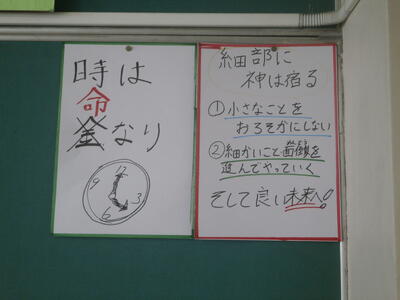 時は
命
金なり
12
9
3
6
細部に
神は宿る
①小さなことを
おろそかにしない
②細かいこと
進んでやっていく
そして良い未来へ!